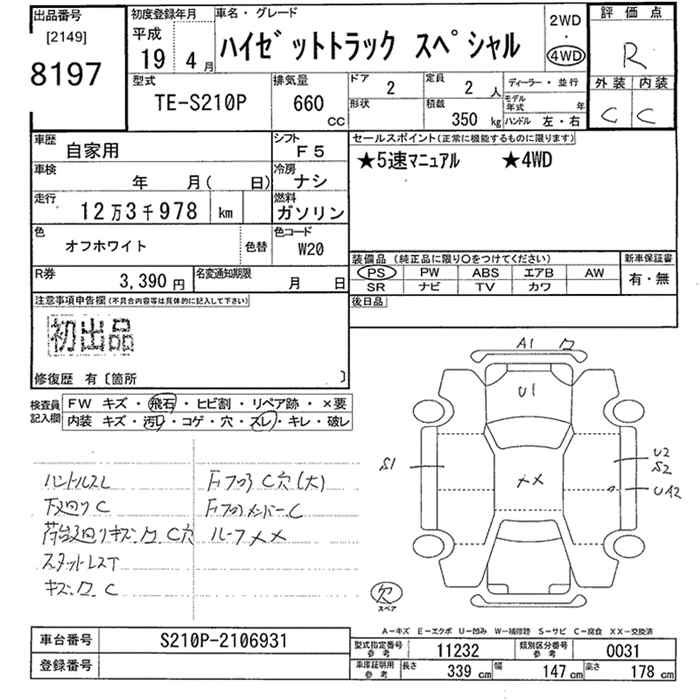 出品番号
[2149]
8197
初度登録年月
平成
19 4月
車名・グレード
ハイゼットトラック スペシャル
2WD
・
4WD
評価点
R
外装 内装
C C
型式
TE-S210P
排気量
660
CC
ドア 2
定員 2 人
ディーラー・並行
形状
積載 350 kg
モデル年式 年
ハンドル 左・右
車歴 自家用
シフト F5
車検 年 月( 日)
冷房 ナシ
走行 12万3千978 km
燃料 ガソリン
色 オフホワイト 色替
色コード W20
R券 3,390円
名変通知期限 月 日
セールスポイント(正常に機能するものに限ります)
★5速マニュアル ★4WD
装備品(純正品に限り○をつけてください)
新車保証書
PS PW ABS エアB AW
有・無
SR ナビ TV カワ
後日品
注意事項申告欄(不具合内容等は具体的に記入して下さい)
初出品
修復歴 有〔箇所 〕
検査員記入欄
FW キズ・飛石・ヒビ割・リペア跡・×要
内装 キズ・汚レ・コゲ・穴・スレ・キレ・破レ
ハンドルスレ
下廻りC
荷台廻りキズ、ワ、C穴
キズ、ワ、C
C穴(大)
ルーフメメ
A1 ワ
U1
S1
メメ
U2
S2
UA2
欠
スペア
A-キズ E-エクボ U-凹み W-補修跡 S-サビ C-腐食 XX-交換済
車台番号 S210P-2106931
登録番号
型式指定番号参考 11232
類別区分番号参考 0031
車庫証明用参考 長さ 339 cm 幅 147 cm 高さ 178 cm